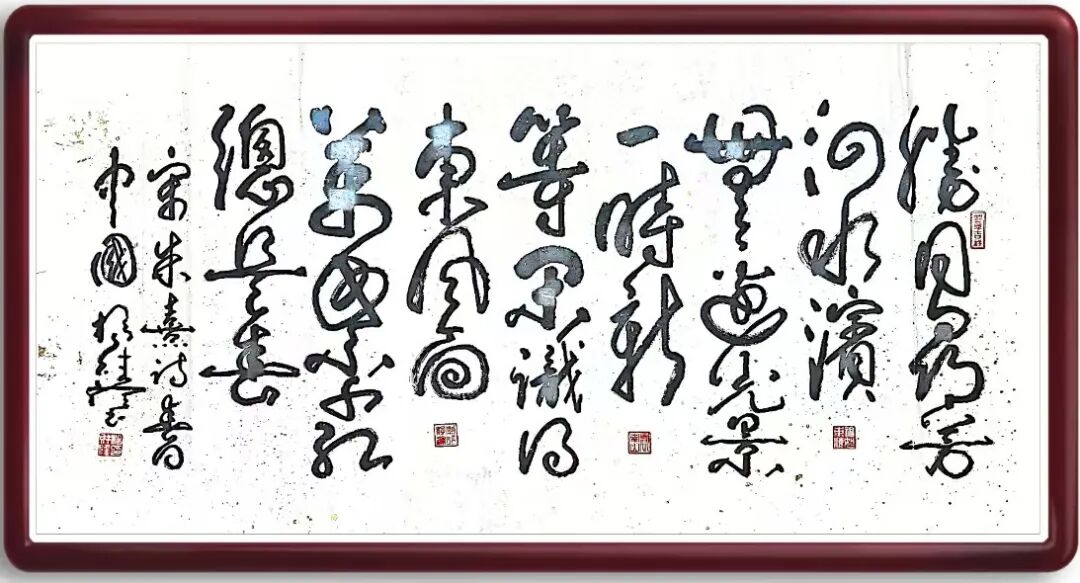 勝日尋芳
泗水濱
無邊光景
一時新
等閒識得
東風面
萬紫千紅
總是春
宋朱熹詩春日
中國